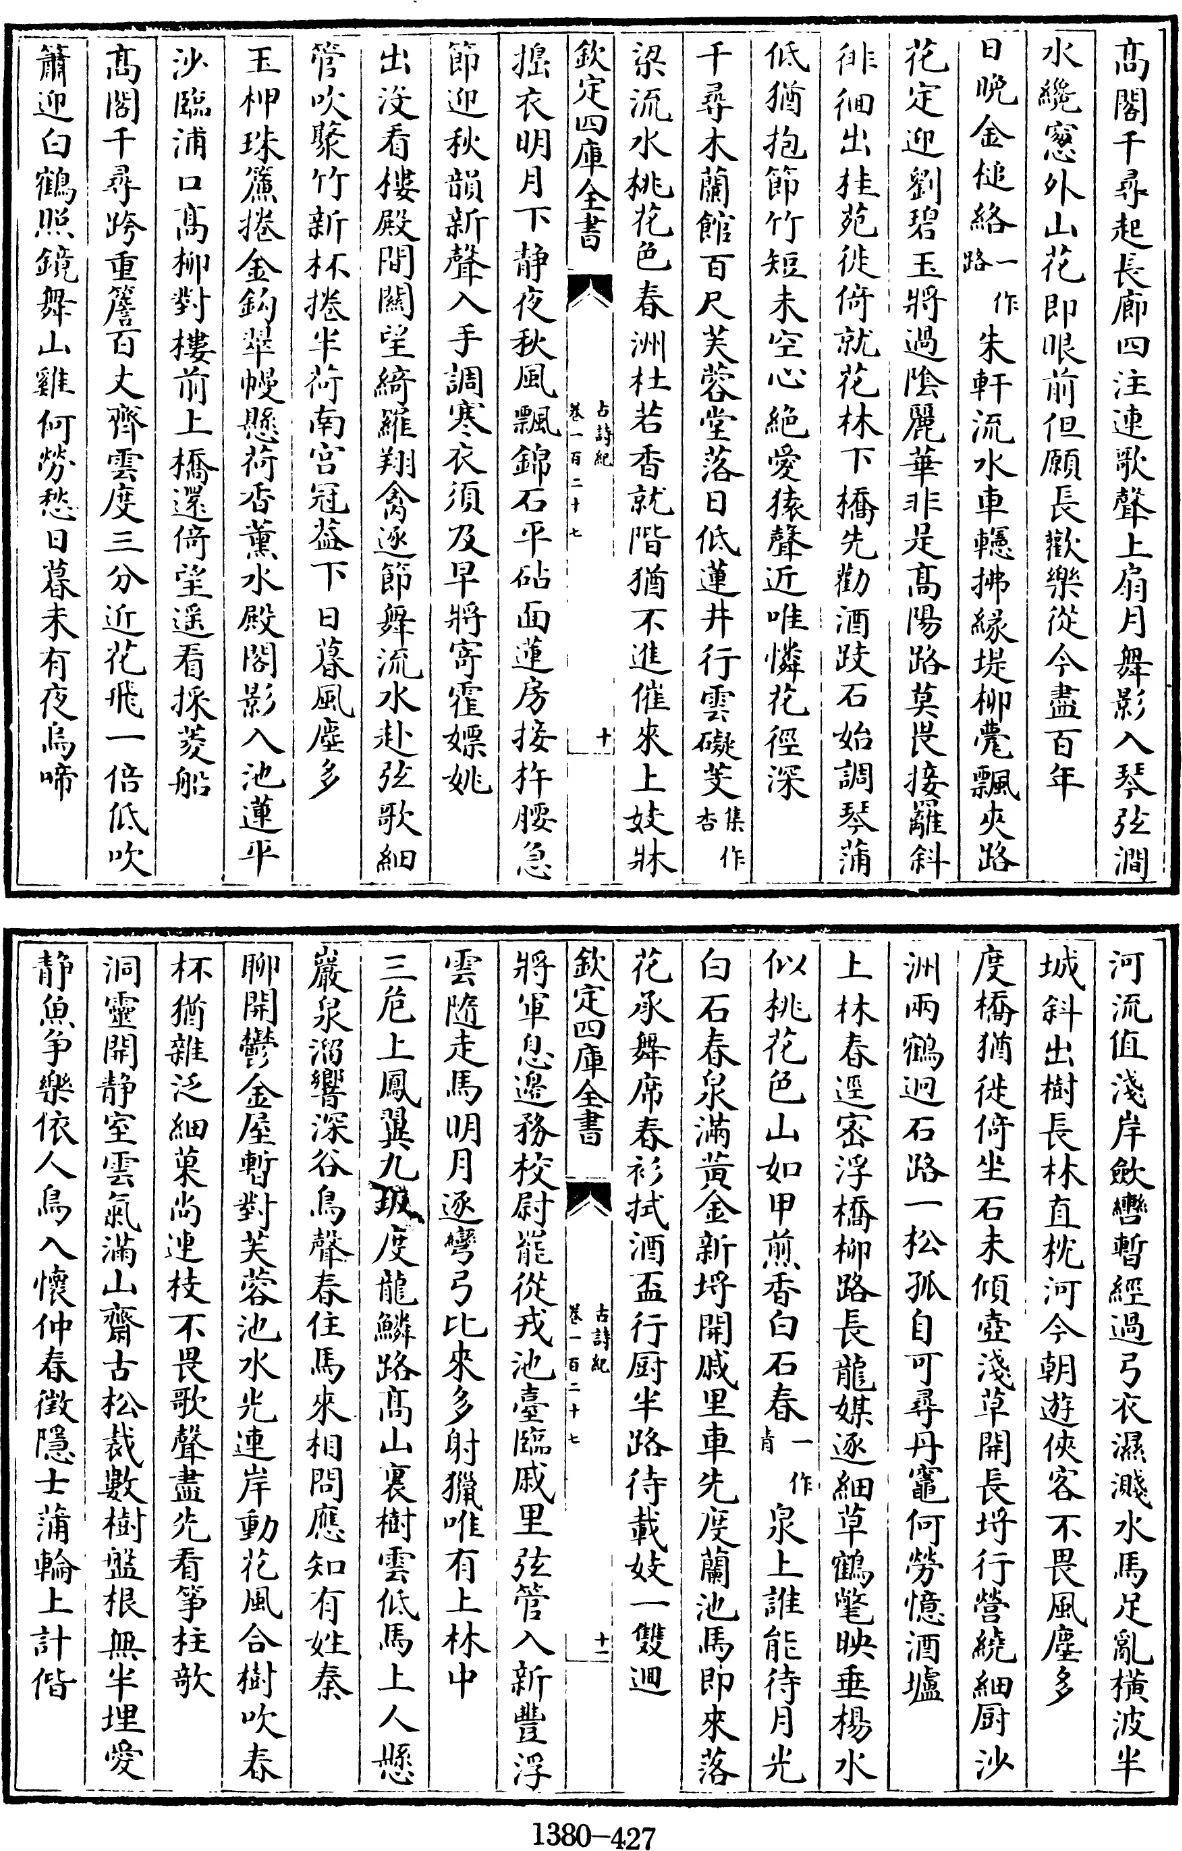 高閣千尋起長廊四注連歌聲上扇月舞影入琴弦澗
水纔窓外山花即眼前但願長歡樂從今盡百年
日晚金槌絡一作路朱軒流水車轊拂緣堤柳甍飄夾路
花定迎劉碧玉將過陰麗華非是高陽路莫畏接䍦斜
徘徊出桂苑徙倚就花林下橋先勸酒跂石始調琴蒲
低猶抱節竹短未空心絶愛猿聲近唯憐花徑深
千尋木蘭館百尺芙蓉堂落日低蓮井行雲礙芰集作杏
梁流水桃花色春洲杜若香就階猶不進催來上妓牀
欽定四庫全書
古詩紀
卷一百二十七
十
擣衣明月下静夜秋風飄錦石平砧面蓮房接杵腰急
節迎秋韻新聲入手調寒衣須及早將寄霍嫖姚
出沒看樓殿間關望綺羅翔禽逐節舞流水赴弦歌細
管吹聚竹新杯捲半荷南宫冠葢下日暮風塵多
玉柙珠簾捲金鈎翠幔懸荷香薰水殿閣影入池蓮平
沙臨浦口高柳對樓前上橋還倚望遥看採菱船
高閣千尋跨重簷百丈齊雲度三分近花飛一倍低吹
簫迎白鶴照鏡舞山雞何勞愁日暮未有夜烏啼
河流值淺岸斂轡暫經過弓衣濕濺水馬足亂橫波半
城斜出樹長林直枕河今朝遊俠客不畏風塵多
度橋猶徙倚坐石未傾壺淺草開長埒行營繞細厨沙
洲兩鶴迥石路一松孤自可尋丹竈何勞憶酒壚
上林春逕密浮橋柳路長龍媒逐細草鶴氅映垂楊水
似桃花色山如甲煎香白石春一作肯泉上誰能待月光
白石春泉滿黄金新埒開戚里車先度蘭池馬即來落
花承舞席春衫拭酒盃行厨半路待載妓一雙迴
欽定四庫全書
古詩紀
卷一百二十七
十一
將軍息邉務校尉罷從戎池臺臨戚里弦管入新豐浮
雲隨走馬明月逐彎弓比來多射獵唯有上林中
三危上鳳翼九坂度龍鱗路高山裏樹雲低馬上人懸
巖泉溜響深谷鳥聲春住馬來相問應知有姓秦
聊開鬱金屋暫對芙蓉池水光連岸動花風合樹吹春
杯猶雜泛細菓尚連枝不畏歌聲盡先看箏柱欹
洞靈開静室雲氣滿山齋古松裁數樹盤根無半埋愛
静魚争樂依人鳥入懷仲春徵隱士蒲輪上計偕
1380—427